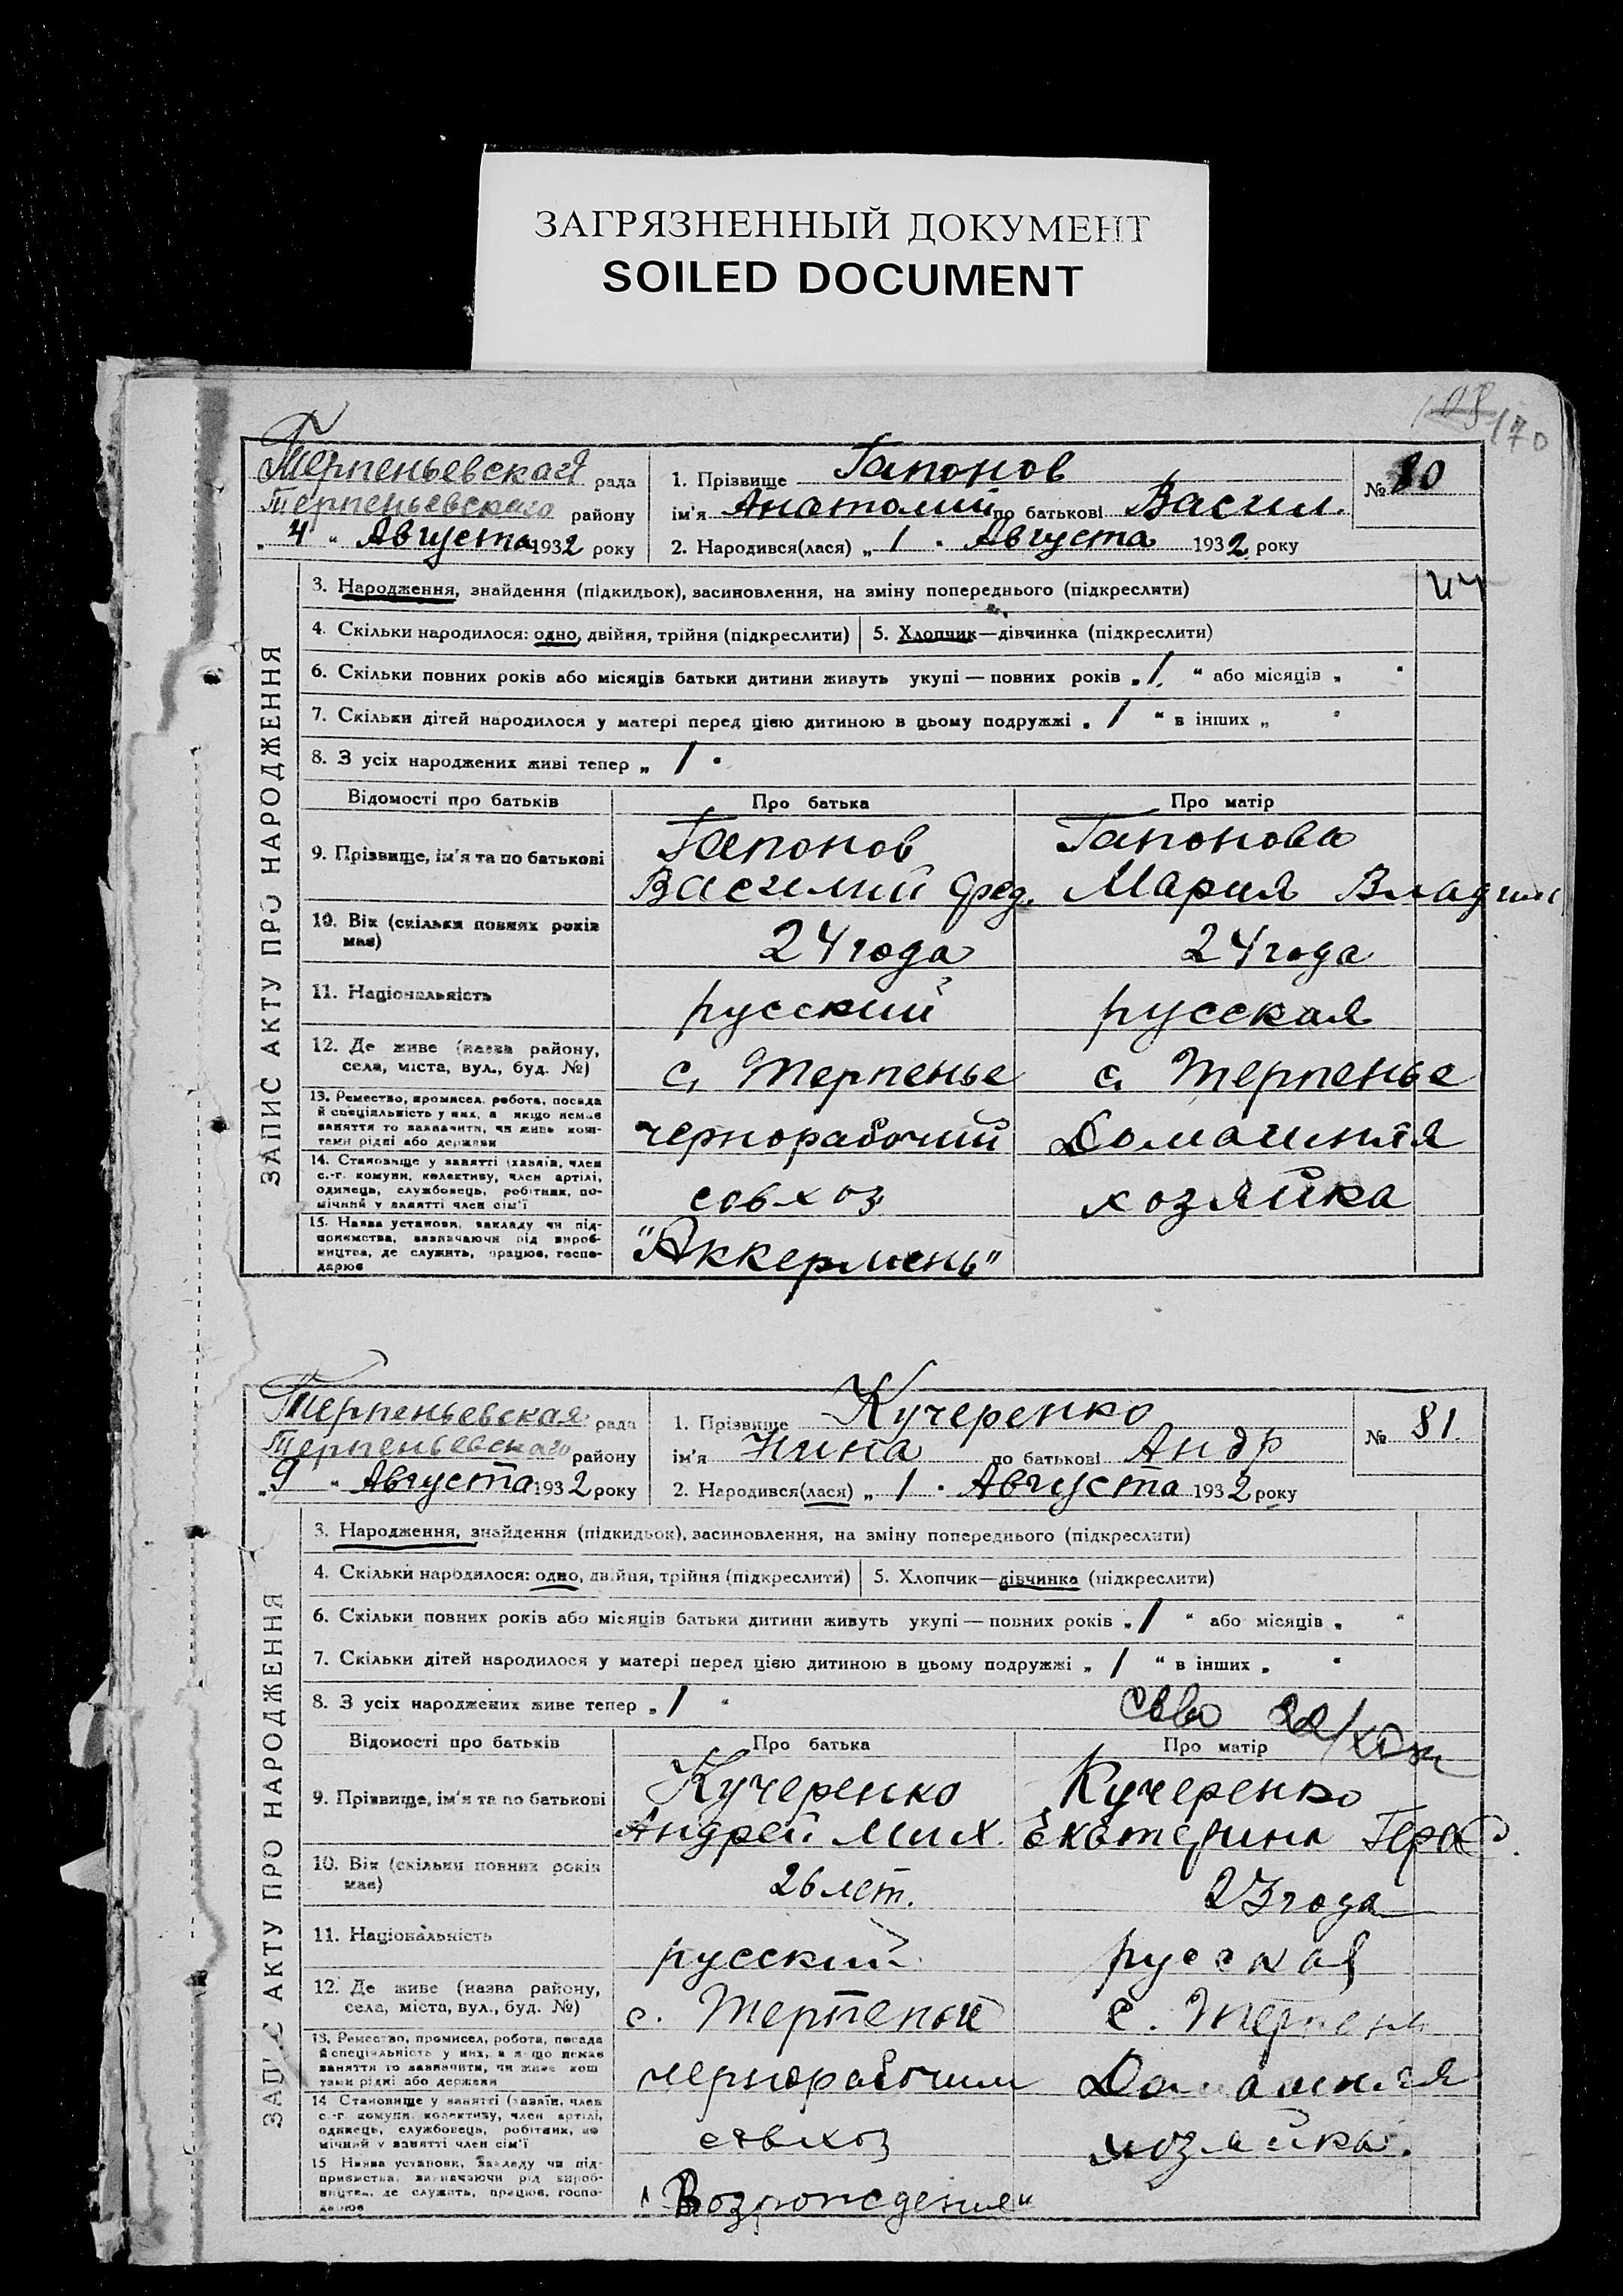 ЗАГРЯЗНЕННЫЙ ДОКУМЕНТ
SOILED DOCUMENT
170
Терпеньевская рада
Терпеньевского району
„ 4 “ Августа 1932 року
1. Прізвище Гапонов
ім'я Анатолий по батькові Васил.
2. Народився(лася) „ 1 “ Августа 1932 року
№ 80
ЗАПИС АКТУ ПРО НАРОДЖЕННЯ
3. Народження, знайдення (підкидьок), засиновлення, на зміну попереднього (підкреслити)
4. Скільки народилося: одно, двійня, трійня (підкреслити) 5. Хлопчик—дівчинка (підкреслити)
6. Скільки повних років або місяців батьки дитини живуть укупі — повних років „ 1 “ або місяців „ “
7. Скільки дітей народилося у матері перед цією дитиною в цьому подружжі „ 1 “ в інших „ “
8. З усіх народжених живі тепер „ 1 “
Відомості про батьків Про батька Про матір
9. Прізвище, ім'я та по батькові Гапонов Гапонова
Василий Фед. Мария Владим
10. Вік (скільки повних років має) 24 года 24 года
11. Національність русский русская
12. Де живе (назва району, села, міста, вул., буд. №) с. Терпенье с. Терпенье
13. Ремество, промисел, робота, посада й спеціяльність у них, а якщо немає заняття то зазначити, чи живе коштами рідні або держави чернорабочий Домашняя
14. Становище у занятті (хазяїн, член с.-г. комуни, колективу, член артілі, одинець, службовець, робітник, помічний у занятті член сім'ї совхоз хозяйка
15. Назва установи, закладу чи підприємства, зазначаючи рід виробництва, де служить, працює, господарює "Аккермень"
Терпеньевская рада
Терпеньевского району
„ 9 “ Августа 1932 року
1. Прізвище Кучеренко
ім'я Нина по батькові Андр
2. Народився(лася) „ 1 “ Августа 1932 року
№ 81
ЗАПИС АКТУ ПРО НАРОДЖЕННЯ
3. Народження, знайдення (підкидьок), засиновлення, на зміну попереднього (підкреслити)
4. Скільки народилося: одно, двійня, трійня (підкреслити) 5. Хлопчик—дівчинка (підкреслити)
6. Скільки повних років або місяців батьки дитини живуть укупі — повних років „ 1 “ або місяців „ “
7. Скільки дітей народилося у матері перед цією дитиною в цьому подружжі „ 1 “ в інших „ “
8. З усіх народжених живе тепер „ 1 “
Відомості про батьків Про батька Про матір
9. Прізвище, ім'я та по батькові Кучеренко Кучеренко
Андрей Мих. Екатерина Герас.
10. Вік (скільки повних років має) 26 лет. 23 года
11. Національність русский русская
12. Де живе (назва району, села, міста, вул., буд. №) с. Терпенье с. Терпень
13. Ремество, промисел, робота, посада й спеціяльність у них, а якщо немає заняття то зазначити, чи живе коштами рідні або держави чернорабочий Домашняя
14 Становище у занятті (хазяїн, член с.-г. комуни, колективу, член артілі, одинець, службовець, робітник, помічний у занятті член сім'ї совхоз хозяйка.
15 Назва установи, закладу чи підприємства, зазначаючи рід виробництва, де служить, працює, господарює "Возрождение"